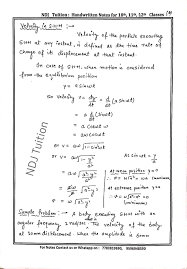 NDJ Tuition: Handwritten Notes for 10th, 11th, 12th Classes
Velocity in SHM :-
Velocity of the particle executing
SHM at any instant, is defined as the time rate of
change of its displacement at that instant.
In case of SHM, when motion is considered
from the equilibrium position
y = a sin ωt
So velocity v = dy/dt = d/dt (a sin ωt)
= a d/dt (sin ωt)
= a cos ωt · ω
= aω cos ωt
= aω √(1 - sin²ωt)
= aω √(1 - y²/a²)
As sin ωt = y/a
At mean position y=0
At extreme position y=a
Sample Problem :- A body executing SHM with an
angular frequency 2 rad/s. The velocity of the body
at 20mm displacement when the amplitude is 60mm
For Notes Contact us or Whatsapp on :-
NDJ Tuition